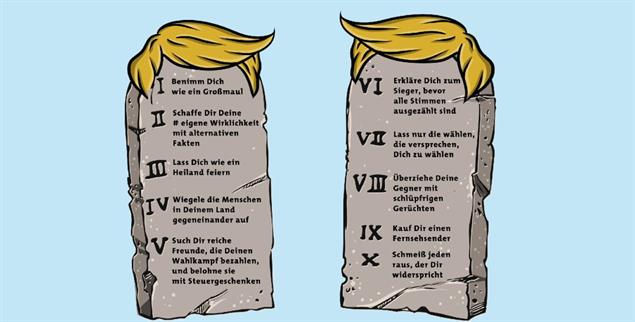 I Benimm Dich
wie ein Großmaul
II Schaffe Dir Deine
# eigene Wirklichkeit
mit alternativen
Fakten
III Lass Dich wie ein
Heiland feiern
IV Wiegele die Menschen
in Deinem Land
gegeneinander auf
V Such Dir reiche
Freunde, die Deinen
Wahlkampf bezahlen,
und belohne sie
mit Steuergeschenken
VI Erkläre Dich zum
Sieger, bevor
alle Stimmen
ausgezählt sind
VII Lass nur die wählen,
die versprechen,
Dich zu wählen
VIII Überziehe Deine
Gegner mit
schlüpfrigen
Gerüchten
IX Kauf Dir einen
Fernsehsender
X Schmeiß jeden
raus, der Dir
widerspricht